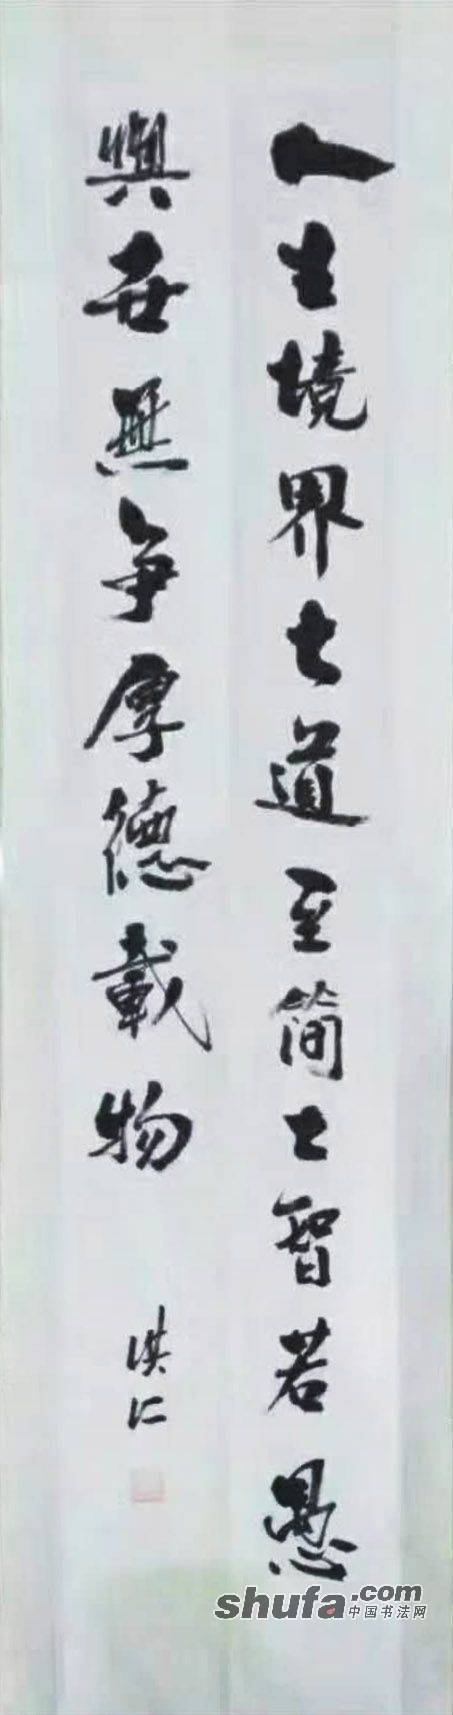 人生境界大道至简大智若愚
與世無争厚德載物
淇仁
shufa.com
中国书法网